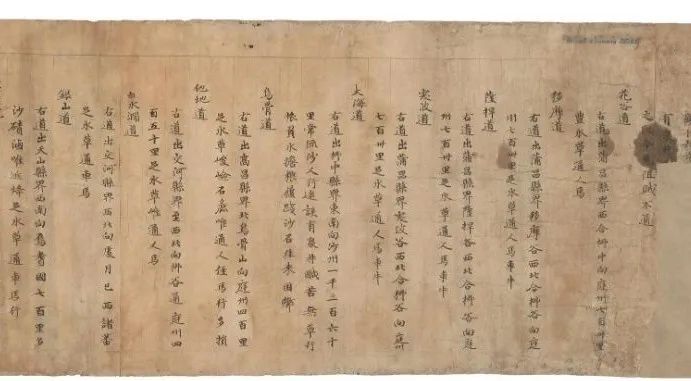 阻賊不通
花谷道
右道出蒲昌縣界西合柳中向庭州七百卅里
豐水草通人馬
移摩道
右道出蒲昌縣界移摩谷西北合柳谷向庭
州七百卌里足水草通人馬車牛
薩捍道
右道出蒲昌縣界薩捍谷西北合柳谷向庭
州七百卅里足水草通人馬車牛
突波道
右道出蒲昌縣界突波谷西北合柳谷向庭州
七百卅里足水草通人馬車牛
大海道
右道出柳中縣界東南向沙州一千三百六十
里常流沙人行迷誤有泉井鹹苦無草行
旅負水擔糧履踐沙石往來困弊
烏骨道
右道出高昌縣界北烏骨山向庭州四百里
足水草峻嶮石麤唯通人徑馬行多損
他地道
右道出交河縣界至西北向柳谷通庭州四
百五十里足水草唯通人馬
水澗道
右道出交河縣界西北向處月已西諸蕃
足水草通車馬
銀山道
右道出天山縣界西南向焉耆國七百里多
沙磧滷唯近烽足水草通車馬行